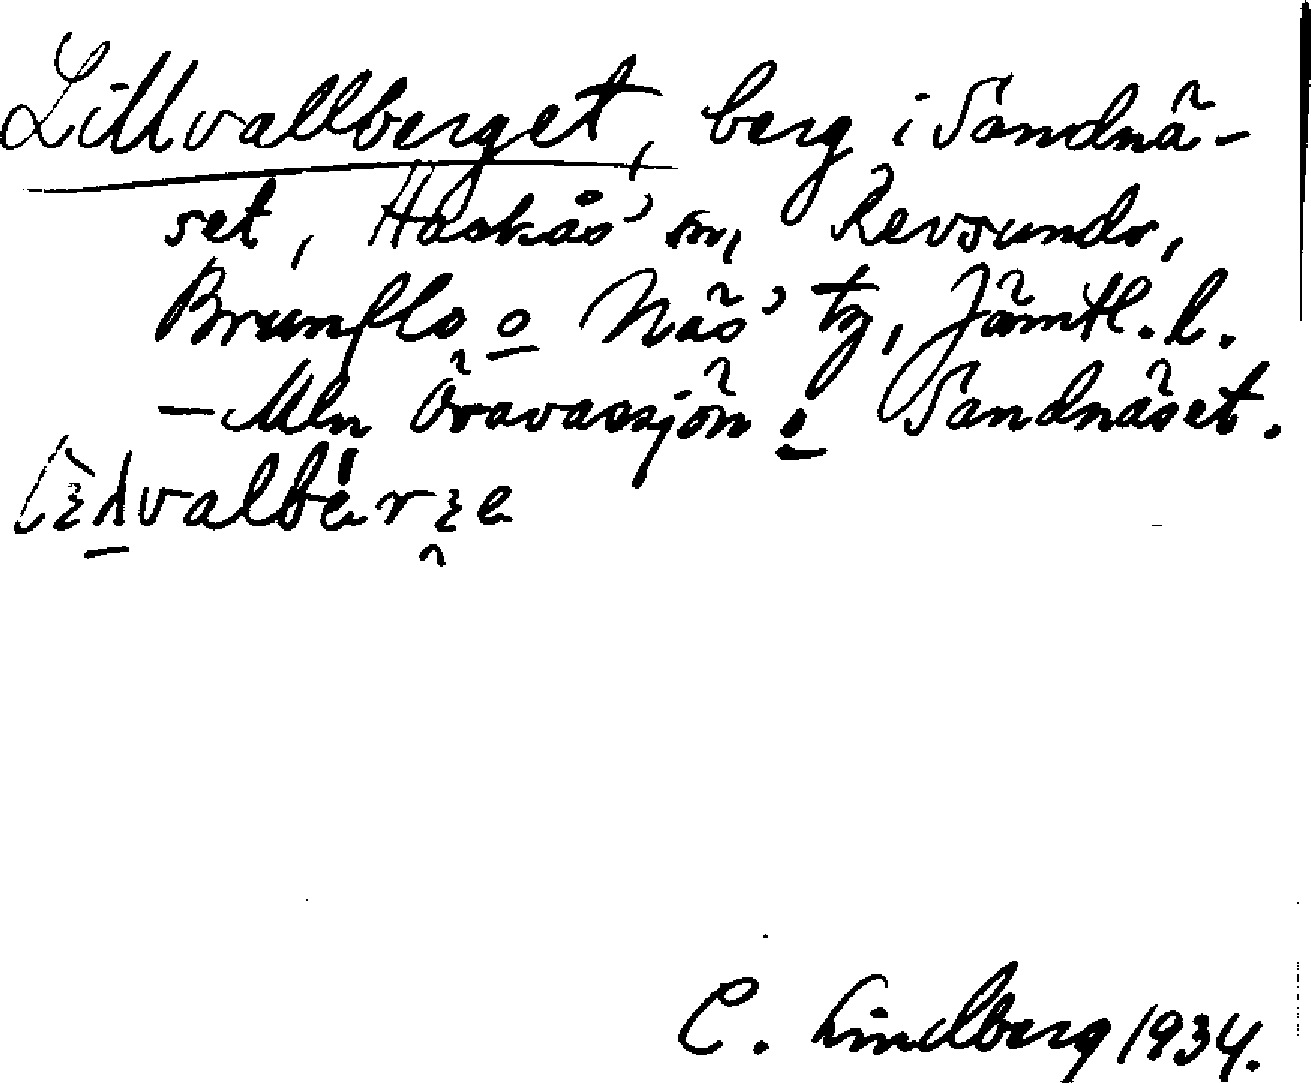 Lillvallberget, berg i Sandnä-
set, Hackås' sn, Revsunds,
Brunflo o Näs' tg, Jämtl. l.
— Mln Öravassjön o Sandnäset.
C. Lindberg 1934.